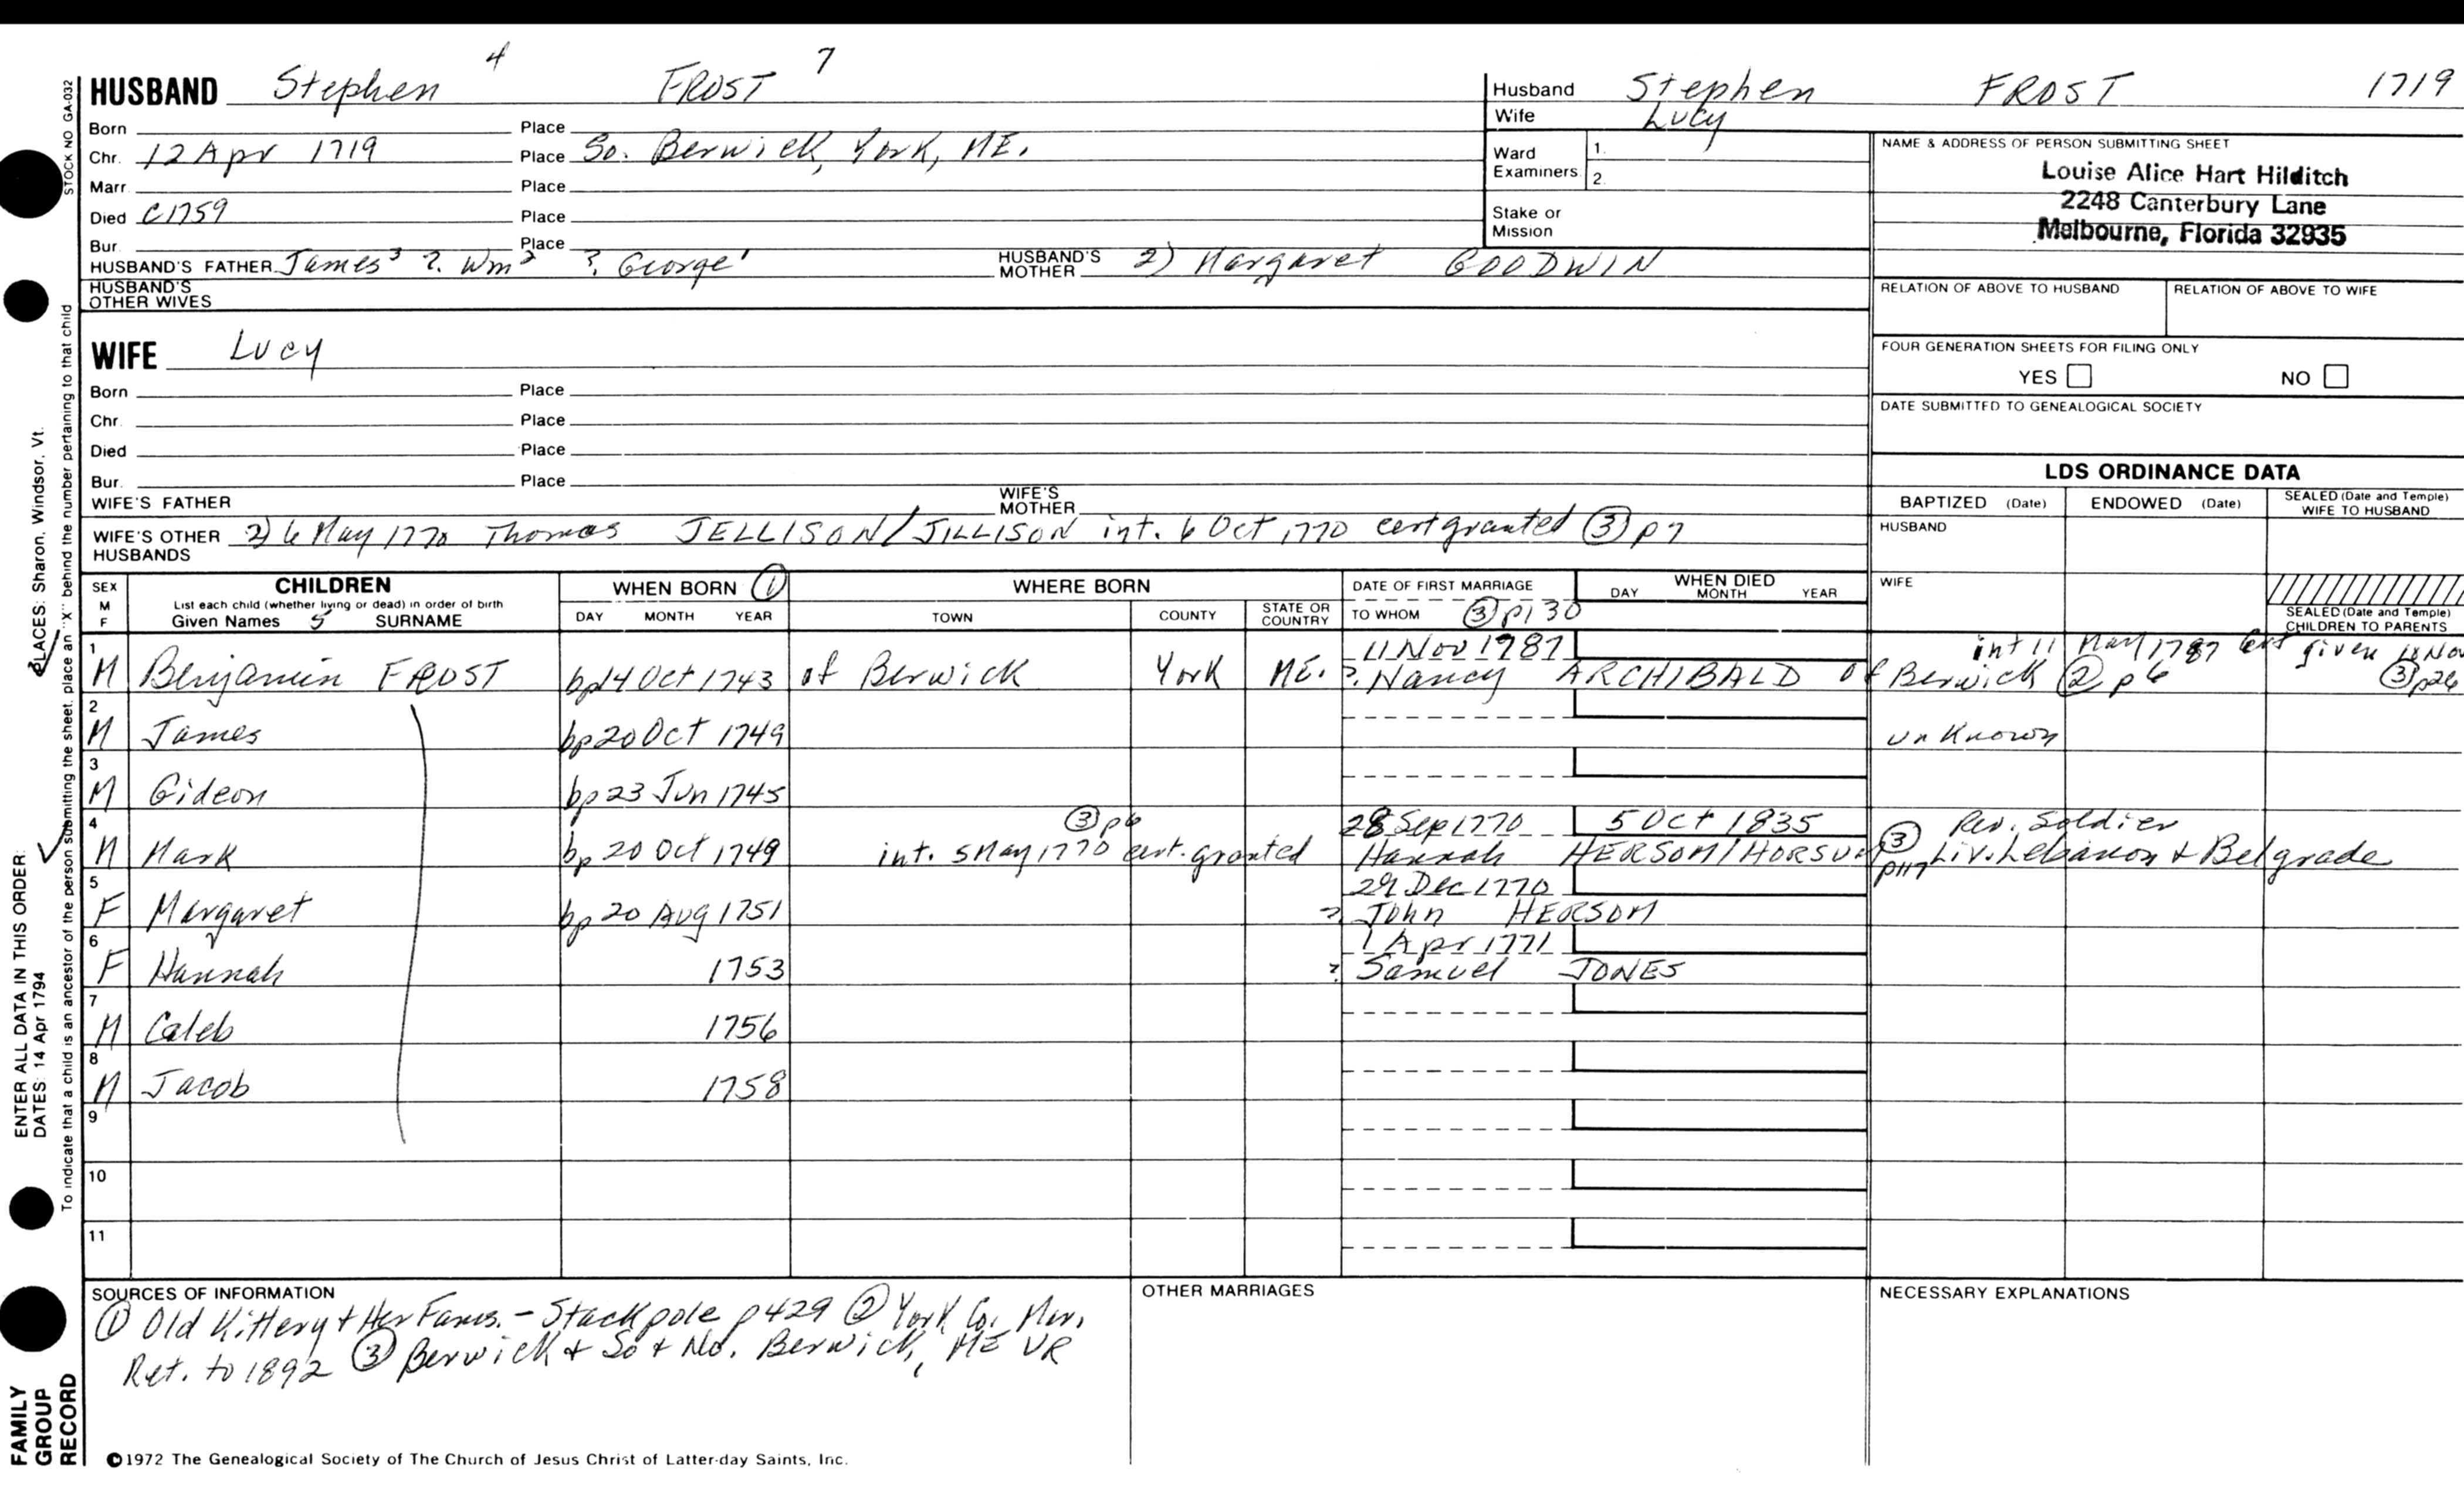 HUSBAND Stephen 4 FROST 7
Born Place
Chr. 12 Apr 1719 Place So. Berwick, York, ME.
Marr. Place
Died C1759 Place
Bur. Place
HUSBAND'S FATHER James 3 ? Wm 2 ? George 1 HUSBAND'S MOTHER 2) Margaret GOODWIN
HUSBAND'S OTHER WIVES
Husband Stephen FROST 1719
Wife Lucy
Ward Examiners 1.
2.
Stake or Mission
NAME & ADDRESS OF PERSON SUBMITTING SHEET
Louise Alice Hart Hilditch
2248 Canterbury Lane
Melbourne, Florida 32935
RELATION OF ABOVE TO HUSBAND RELATION OF ABOVE TO WIFE
FOUR GENERATION SHEETS FOR FILING ONLY
YES NO
DATE SUBMITTED TO GENEALOGICAL SOCIETY
WIFE Lucy
Born Place
Chr. Place
Died Place
Bur. Place
WIFE'S FATHER WIFE'S MOTHER
WIFE'S OTHER HUSBANDS 2) 6 May 1770 Thomas JELLISON/JILLISON int. 6 Oct 1770 cert granted (3) p7
LDS ORDINANCE DATA
BAPTIZED (Date) ENDOWED (Date) SEALED (Date and Temple) WIFE TO HUSBAND
HUSBAND
WIFE
SEALED (Date and Temple) CHILDREN TO PARENTS
SEX M F CHILDREN List each child (whether living or dead) in order of birth Given Names 5 SURNAME
WHEN BORN (1) DAY MONTH YEAR
WHERE BORN TOWN COUNTY STATE OR COUNTRY
DATE OF FIRST MARRIAGE TO WHOM (3) p130
WHEN DIED DAY MONTH YEAR
1 11 Nov 1787 int 11 May 1787 cert given 18 Nov
M Benjamin FROST bp 14 Oct 1743 of Berwick York ME. ? Nancy ARCHIBALD of Berwick (2) p6 (3) p26
2 M James bp 20 Oct 1749 unknown
3 M Gideon bp 23 Jun 1745
4 (3) p6 28 Sep 1770 5 Oct 1835 (3) Rev. Soldier
M Mark bp 20 Oct 1749 int. 5 May 1770 cert. granted Hannah HERSOM/HORSUM p117 Liv. Lebanon + Belgrade
5 29 Dec 1770
F Margaret bp 20 Aug 1751 ? John HERSOM
6 1 Apr 1771
F Hannah 1753 ? Samuel JONES
7 M Caleb 1756
8 M Jacob 1758
9
10
11
SOURCES OF INFORMATION
(1) Old Kittery + Her Fams. - Stackpole p429 (2) York Co. Mar.
Ret. to 1892 (3) Berwick + So + No. Berwick, ME VR
OTHER MARRIAGES
NECESSARY EXPLANATIONS
©1972 The Genealogical Society of The Church of Jesus Christ of Latter-day Saints, Inc.
STOCK NO GA-032
To indicate that a child is an ancestor of the person submitting the sheet, place an "X" behind the number pertaining to that child
ENTER ALL DATA IN THIS ORDER:
DATES: 14 Apr 1794
PLACES: Sharon, Windsor, Vt.
FAMILY
GROUP
RECORD